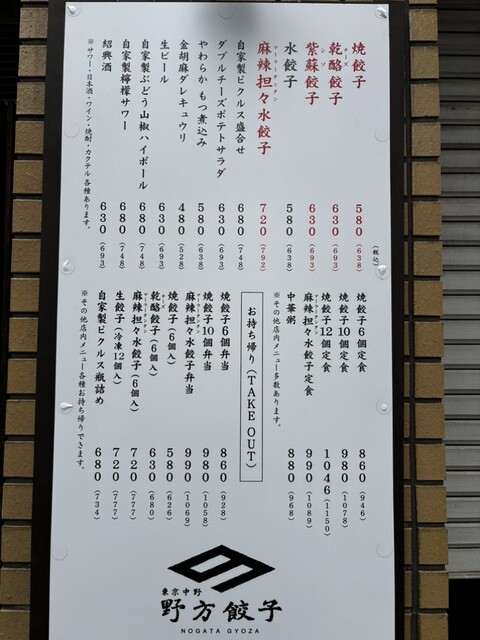 (税込)
焼餃子 580(638)
チーズ
乾酪餃子 630(693)
シソ
紫蘇餃子 630(693)
水餃子 580(638)
マーラータンタン
麻辣担々水餃子 720(792)
自家製ピクルス盛合せ 680(748)
ダブルチーズポテトサラダ 630(693)
やわらか もつ煮込み 580(638)
金胡麻ダレキュウリ 480(528)
生ビール 630(693)
自家製ぶどう山椒ハイボール 680(748)
自家製檸檬サワー 680(748)
紹興酒 630(693)
※サワー・日本酒・ワイン・焼酎・カクテル各種あります。
焼餃子6個定食 860(946)
焼餃子10個定食 980(1078)
焼餃子12個定食 1046(1150)
マーラータンタン
麻辣担々水餃子定食 990(1089)
中華粥 880(968)
※その他店内メニュー多数あります。
お持ち帰り(TAKE OUT)
焼餃子6個弁当 860(928)
焼餃子10個弁当 980(1058)
マーラータンタン
麻辣担々水餃子弁当 990(1069)
焼餃子(6個入) 580(626)
チーズ
乾酪餃子(6個入) 630(680)
マーラータンタン
麻辣担々水餃子(6個入) 720(777)
生餃子(冷凍12個入) 720(777)
自家製ピクルス瓶詰め 680(734)
※その他店内メニュー各種お持ち帰りできます。
東京中野
野方餃子
NOGATA GYOZA